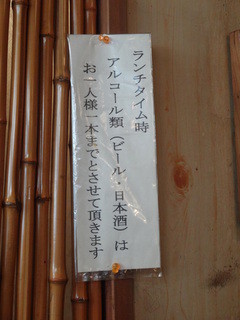 ランチタイム時
アルコール類（ビール・日本酒）は
お一人様一本までとさせて頂きます